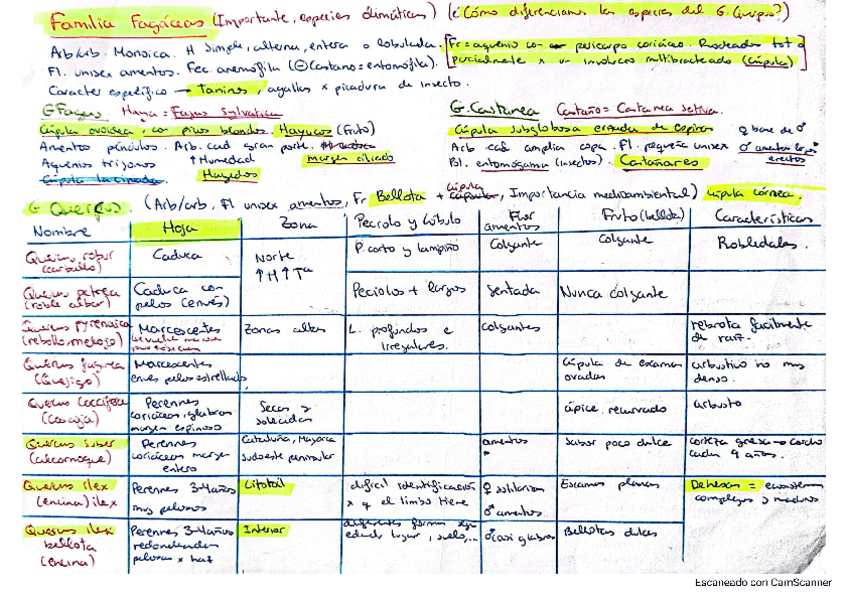 Familia Fagáceas (Importante, especies climáticas) (¿Cómo diferenciamos las especies del G. Quercus?)
Arb/arb. Monoica. H simple, alterna, entera o lobulada. [Fr = aquenio con pericarpo coriáceo. Rodeados tot o
Fl. unisex amentos. Fec. anemofila (⊖Castaño = entomófila). parcialmente x un involucro multibracteado (cúpula)]
Caracter específico → Taninos, agallas x picadura de insecto.
G Fagus Haya = Fagus Sylvatica
Cúpula ovoidea, con pinos blandos. Hayucos (Fruto)
Amentos péndulos. Arb. cad gran porte.
Aquenios trígonos ↑Humedad margen ciliado
Hayedos
G. Castanea Castaño = Castanea sativa.
Cúpula subglobosa erizada de espinas ♀ base de ♂
Arb cad amplia copa. Fl. pequeña unisex ♂ amentos largos erectos
Pol. entomógama (insectos). Castañares
G Quercus. (Arb/arb. Fl unisex amentos, Fr Bellota + cúpula, Importancia medioambiental) cúpula córnea.
Nombre Hoja Zona Peciolo y lóbulo Flor amentos Fruto (bellota) Características
Quercus robur (carballo) Caduca Norte ↑H ↑Tª P. corto y lampiño Colgante Colgante Robledales.
Quercus petrea (roble albar) Caduca con pelos (envés) Peciolos + largos Sentada Nunca colgante
Quercus Pyrenaica (rebollo, melojo) Marcescentes Zonas altas L. profundos e irregulares. Colgantes rebrota facilmente de raíz.
Quercus faginea (Quejigo) Marcescentes envés pelos estrellados, cúpula de escamas ovadas arbustivo no muy denso.
Quercus Coccifera (Coscoja) Perennes coriáceos, glabros margen espinoso Secas y soleadas ápice recurvado arbusto
Quercus suber (alcornoque) Perennes coriáceos margen entero Cataluña, Mayorca sudoeste peninsular amentos Sabor poco dulce corteza gruesa → corcho cada 9 años.
Quercus ilex (encina) ilex Perennes 3-4 años muy pelosos Litoral difícil identificación x q el limbo tiene ♀ solitarias ♂ amentos Escamas planas Dehesas = ecosistemas complejos y maduros
Quercus ilex bellota (encina) Perennes 3-4 años redondeadas pelosas x haz Interior diferentes formas según edad, lugar, suelo,... ♂ casi glabros Bellotas dulces
Escaneado con CamScanner